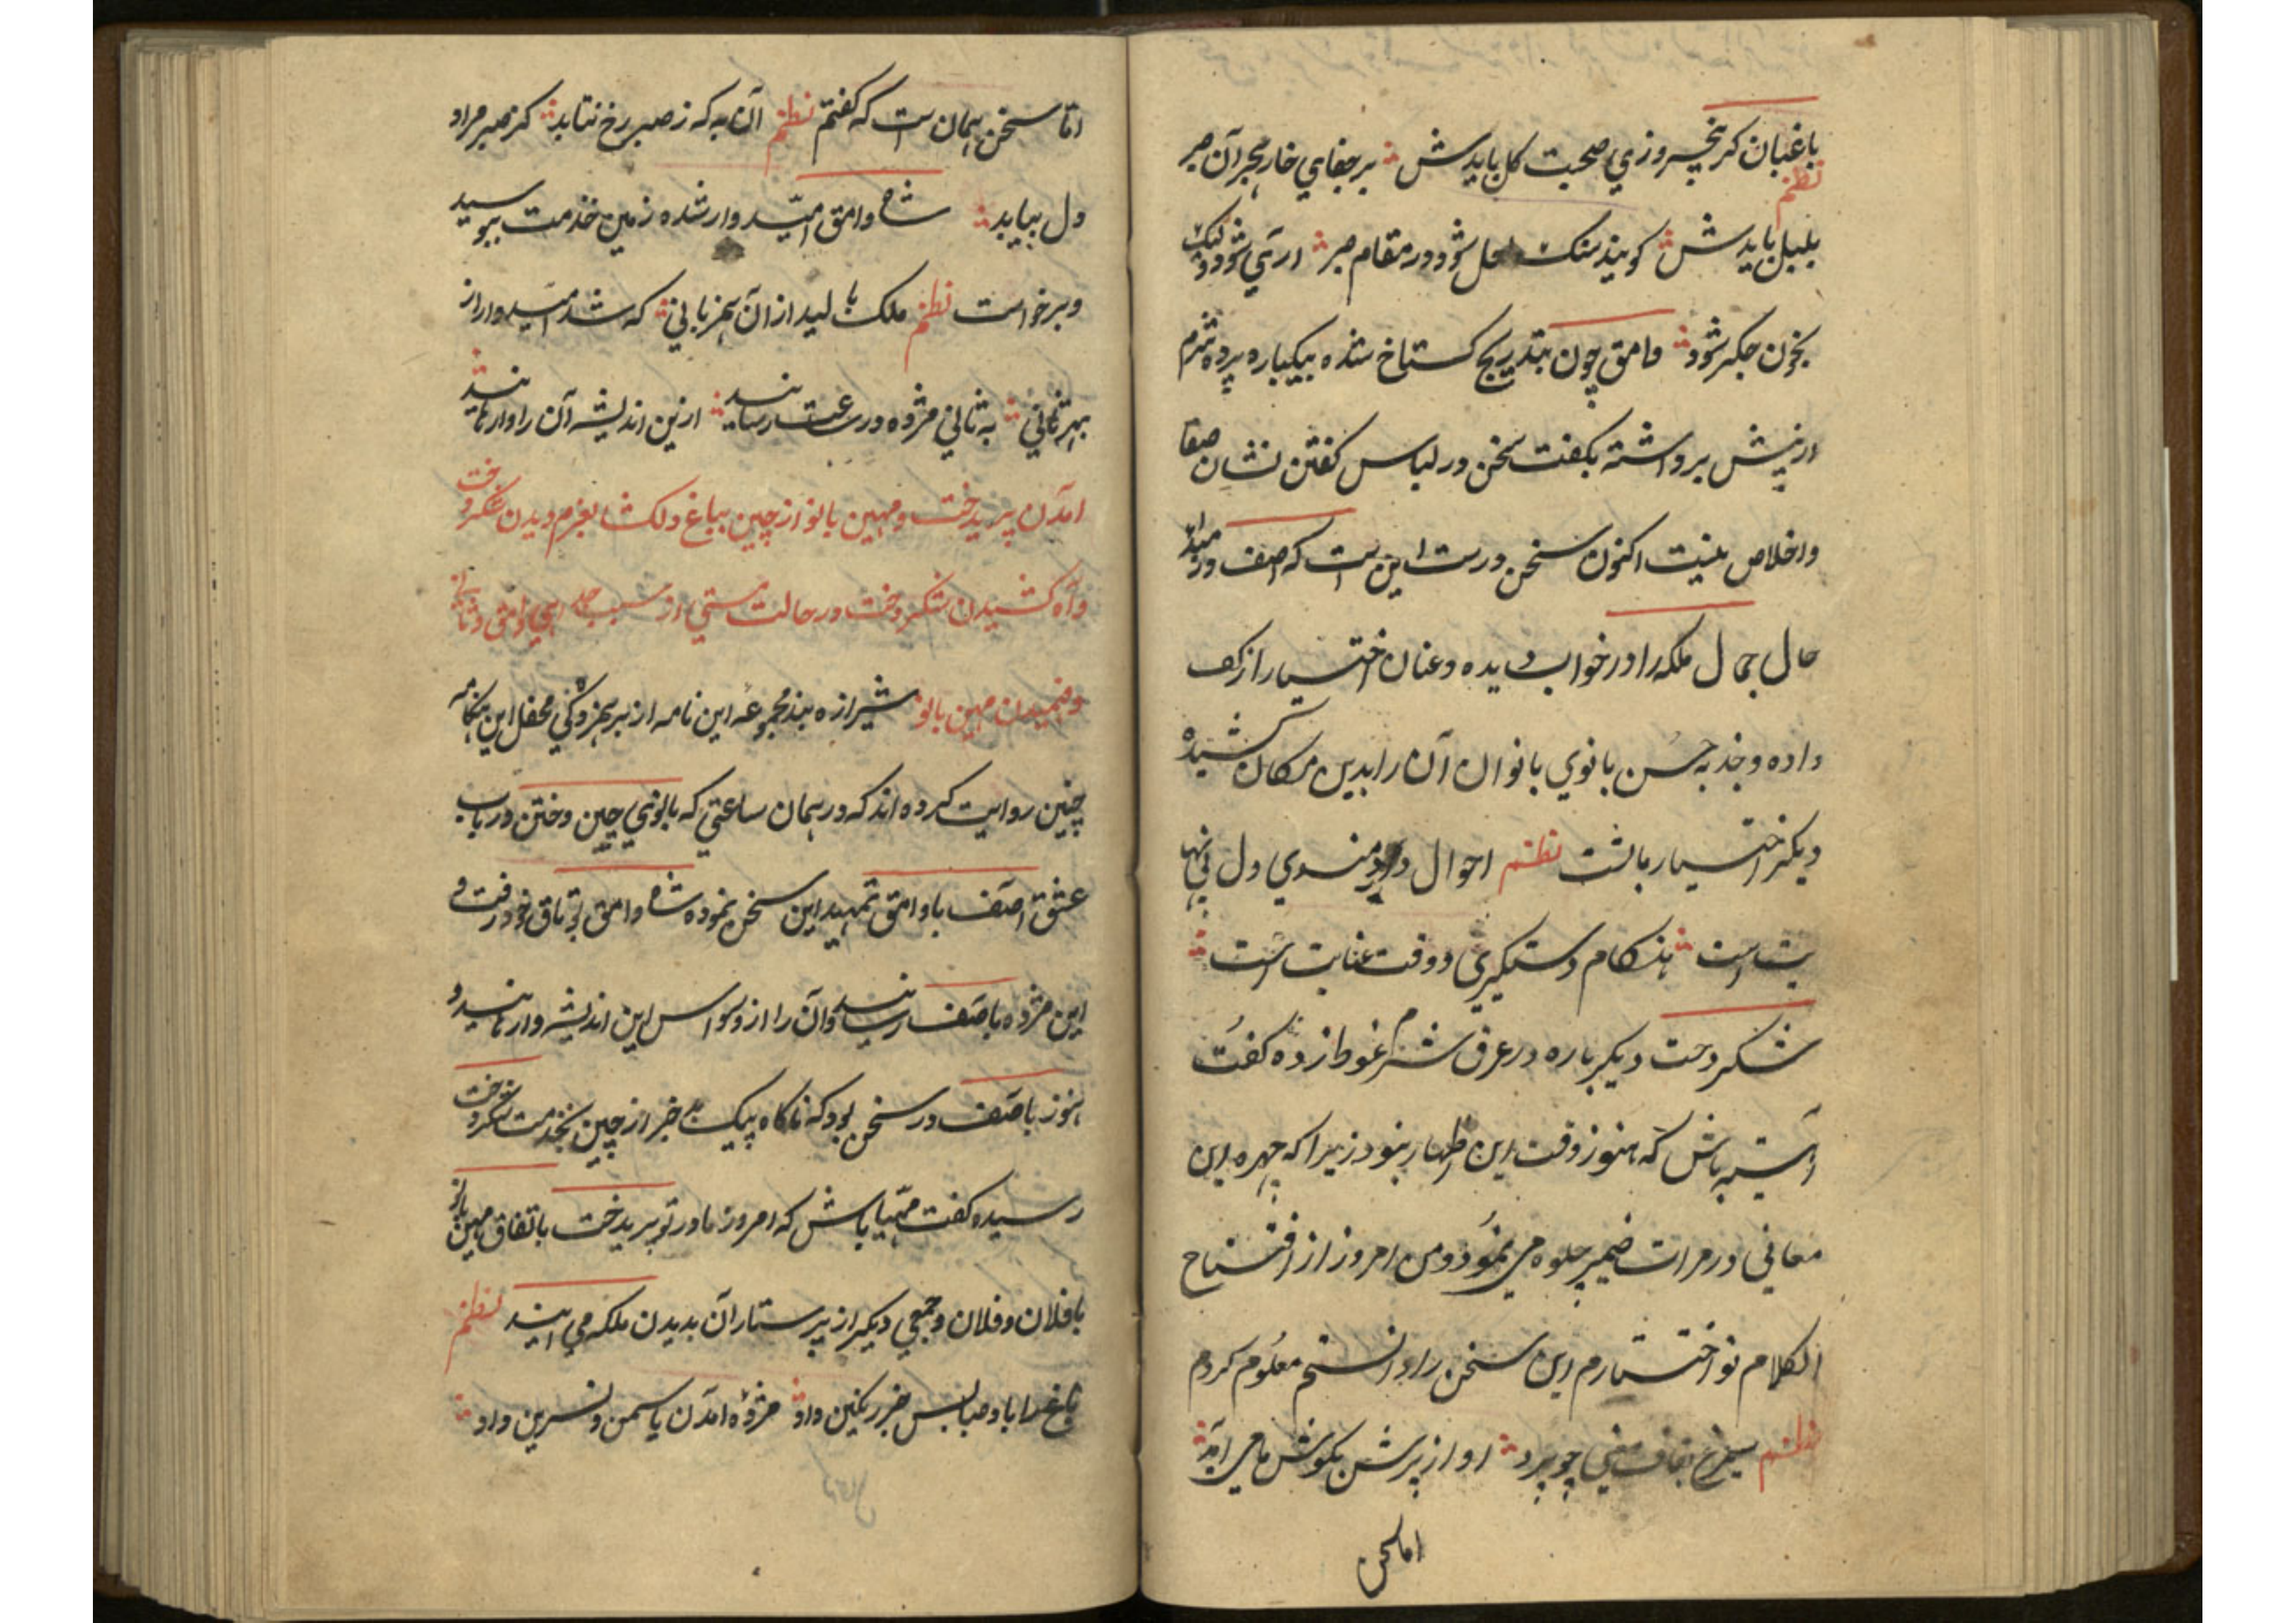 باغبان کر پنجروزی صحبت کل بایدش بر جفای خار هجران صبر
نظم
بلبل بایدش کویند سنک لعل شود در مقام صبر اری شود ولیک
بخون جکر شود وامق چون بتدریج کستاخ شده بیکباره پرده شرم
از پیش برداشته بکفت سخن در لباس کفتن نشان صفا
واخلاص نیست اکنون سخن درست این است که اصف در مبداء
حال جمال ملکه را در خواب دیده وعنان اختیار از کف
داده وجذبه حسن بانوی بانوان آن را بدین مکان کشیده
دیکر اختیار با تست نظم احوال دردمندی دل بی نها
یت است هنکام دستکیری و وقت عنایت است
شکردخت دیکر باره در عرق شرم غوطه زده کفت
آهسته باش که هنوز وقت این اظهار نبود زیرا که چهره این
معانی در مرات ضمیر جلوه می نمود و من امروز از افتتاح
الکلام تو اخترارم این سخن را دانستم معلوم کردم
نظم سیمرغ بقاف معنی چو پرد اواز پرش بکوش ما می آید
اما سخن
اما سخن همان است که کفتم نظم آن به که ز صبر رخ نتابد کز صبر مراد
دل بیابد شاه وامق امیدوار شده زمین خدمت ببوسید
وبرخواست نظم ملک بالید از ان همزبانی که شد امیدوار از
مهربانی به ثانی مژده در ساعت رسانید ازین اندیشه آن را وارهانید
امدن پریدخت ومهین بانو از چین بباغ دلکشا بعزم دیدن شکردخت
وآه کشیدن شکردخت در حالت مستی از سبب جدایی وامق وثانی
وفهمیدن مهین بانو شیرازه بند مجموعه این نامه از سر محفل این هنکامه
چنین روایت کرده اند که در همان ساعتی که بانوی چین وختن در باب
عشق آصف با وامق تمهید این سخن نموده شاه وامق بوتاق خود رفت و
این مژده باصف رسانید وآن را از وسواس این اندیشه وارهانید و
هنوز باصف در سخن بود که ناکاه پیک خبر از چین بخدمت شکردخت
رسیده کفت مهیا باش که امروز مادر تو پریدخت باتفاق مهین بانو
با فلان وفلان وجمعی دیکر از پرستاران بدیدن ملکه می ایند نظم
باغ را باد صبا بس خبر رنکین داد مژده امدن یاسمن ونسرین داد